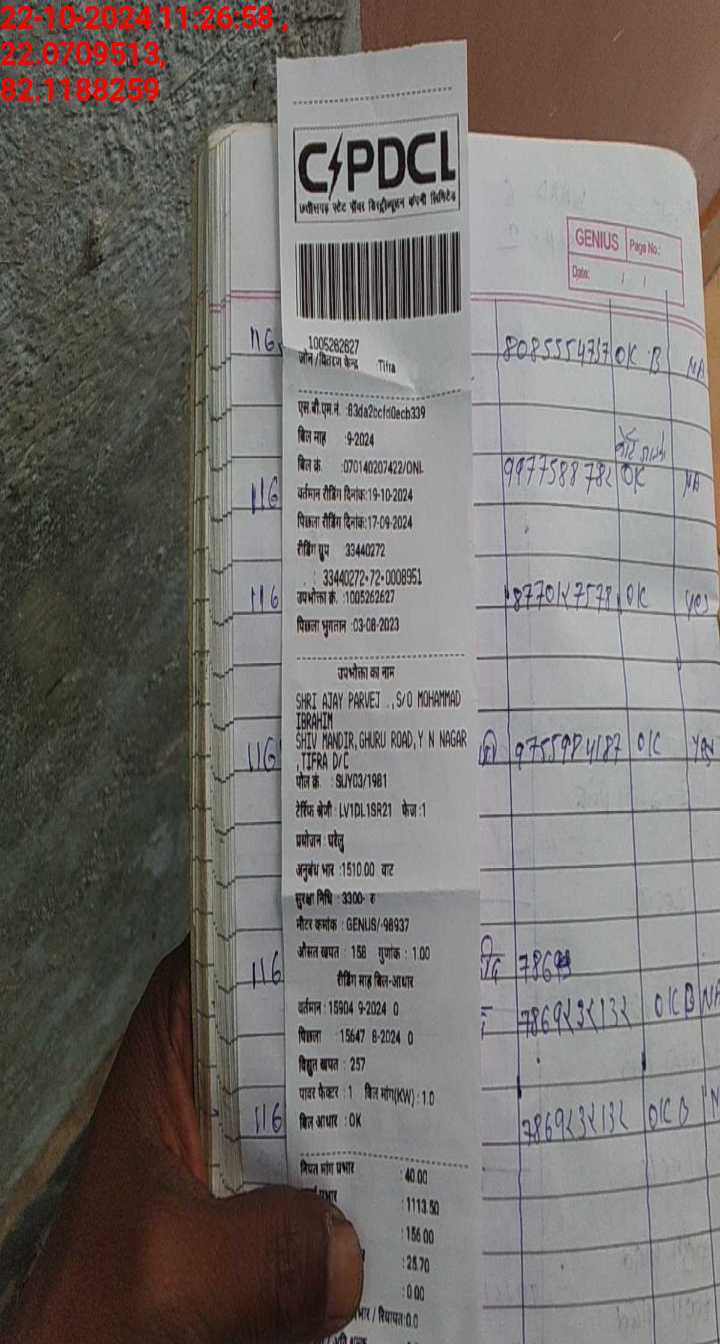 22-10-2024 11:26:58 ,
22.0709513,
82.1188259
CSPDCL
छत्तीसगढ़ स्टेट पॉवर डिस्ट्रीब्यूशन कंपनी लिमिटेड
GENIUS Page No.:
Date: / /
1005262627
जोन/वितरण केन्द्र :Tifra
एस.बी.एम.नं. :83da2bcfd0ecb339
बिल माह :9-2024
बिल क्रं. :070140207422/ONL
वर्तमान रीडिंग दिनांक:19-10-2024
पिछला रीडिंग दिनांक:17-09-2024
रीडिंग ग्रुप 33440272
: 33440272-72-0008951
उपभोक्ता क्रं. :1005262627
पिछला भुगतान :03-08-2023
उपभोक्ता का नाम
SHRI AJAY PARVEJ .,S/O MOHAMMAD
IBRAHIM
SHIV MANDIR,GHURU ROAD,Y N NAGAR
,TIFRA D/C
पोल क्रं. : SUY03/1981
टेरिफ श्रेणी : LV1DL1SR21 फेज :1
प्रयोजन : घरेलु
अनुबंध भार :1510.00 वाट
सुरक्षा निधि : 3300- रु
मीटर क्रमांक : GENUS/-98937
औसत खपत : 158 गुणांक : 1.00
रीडिंग माह बिल-आधार
वर्तमान : 15904 9-2024 0
पिछला : 15647 8-2024 0
विद्युत खपत : 257
पावर फेक्टर : 1 बिल मांग(KW) : 1.0
बिल आधार : OK
नियत मांग प्रभार : 40.00
प्रभार : 1113.50
: 156.00
: 25.70
: 0.00
भार / रियायत:0.0
116 8085554737 OK B NA
116 9977588782 OK NA
116 8770127578 OK yes
116 OK yes
116 7869
7869232132 OK B NA
116 7869232132 OK B N